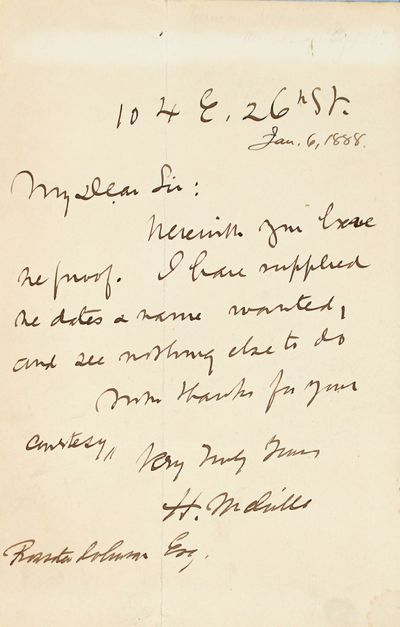 104 E. 26th St.
Jan. 6, 1888.
My Dear Sir:
Herewith you have
the proof. I have supplied
the dates & name wanted,
and see nothing else to do
With thanks for your
courtesy,
Very Truly Yours
H. Melville
Rossiter Johnson Esq.